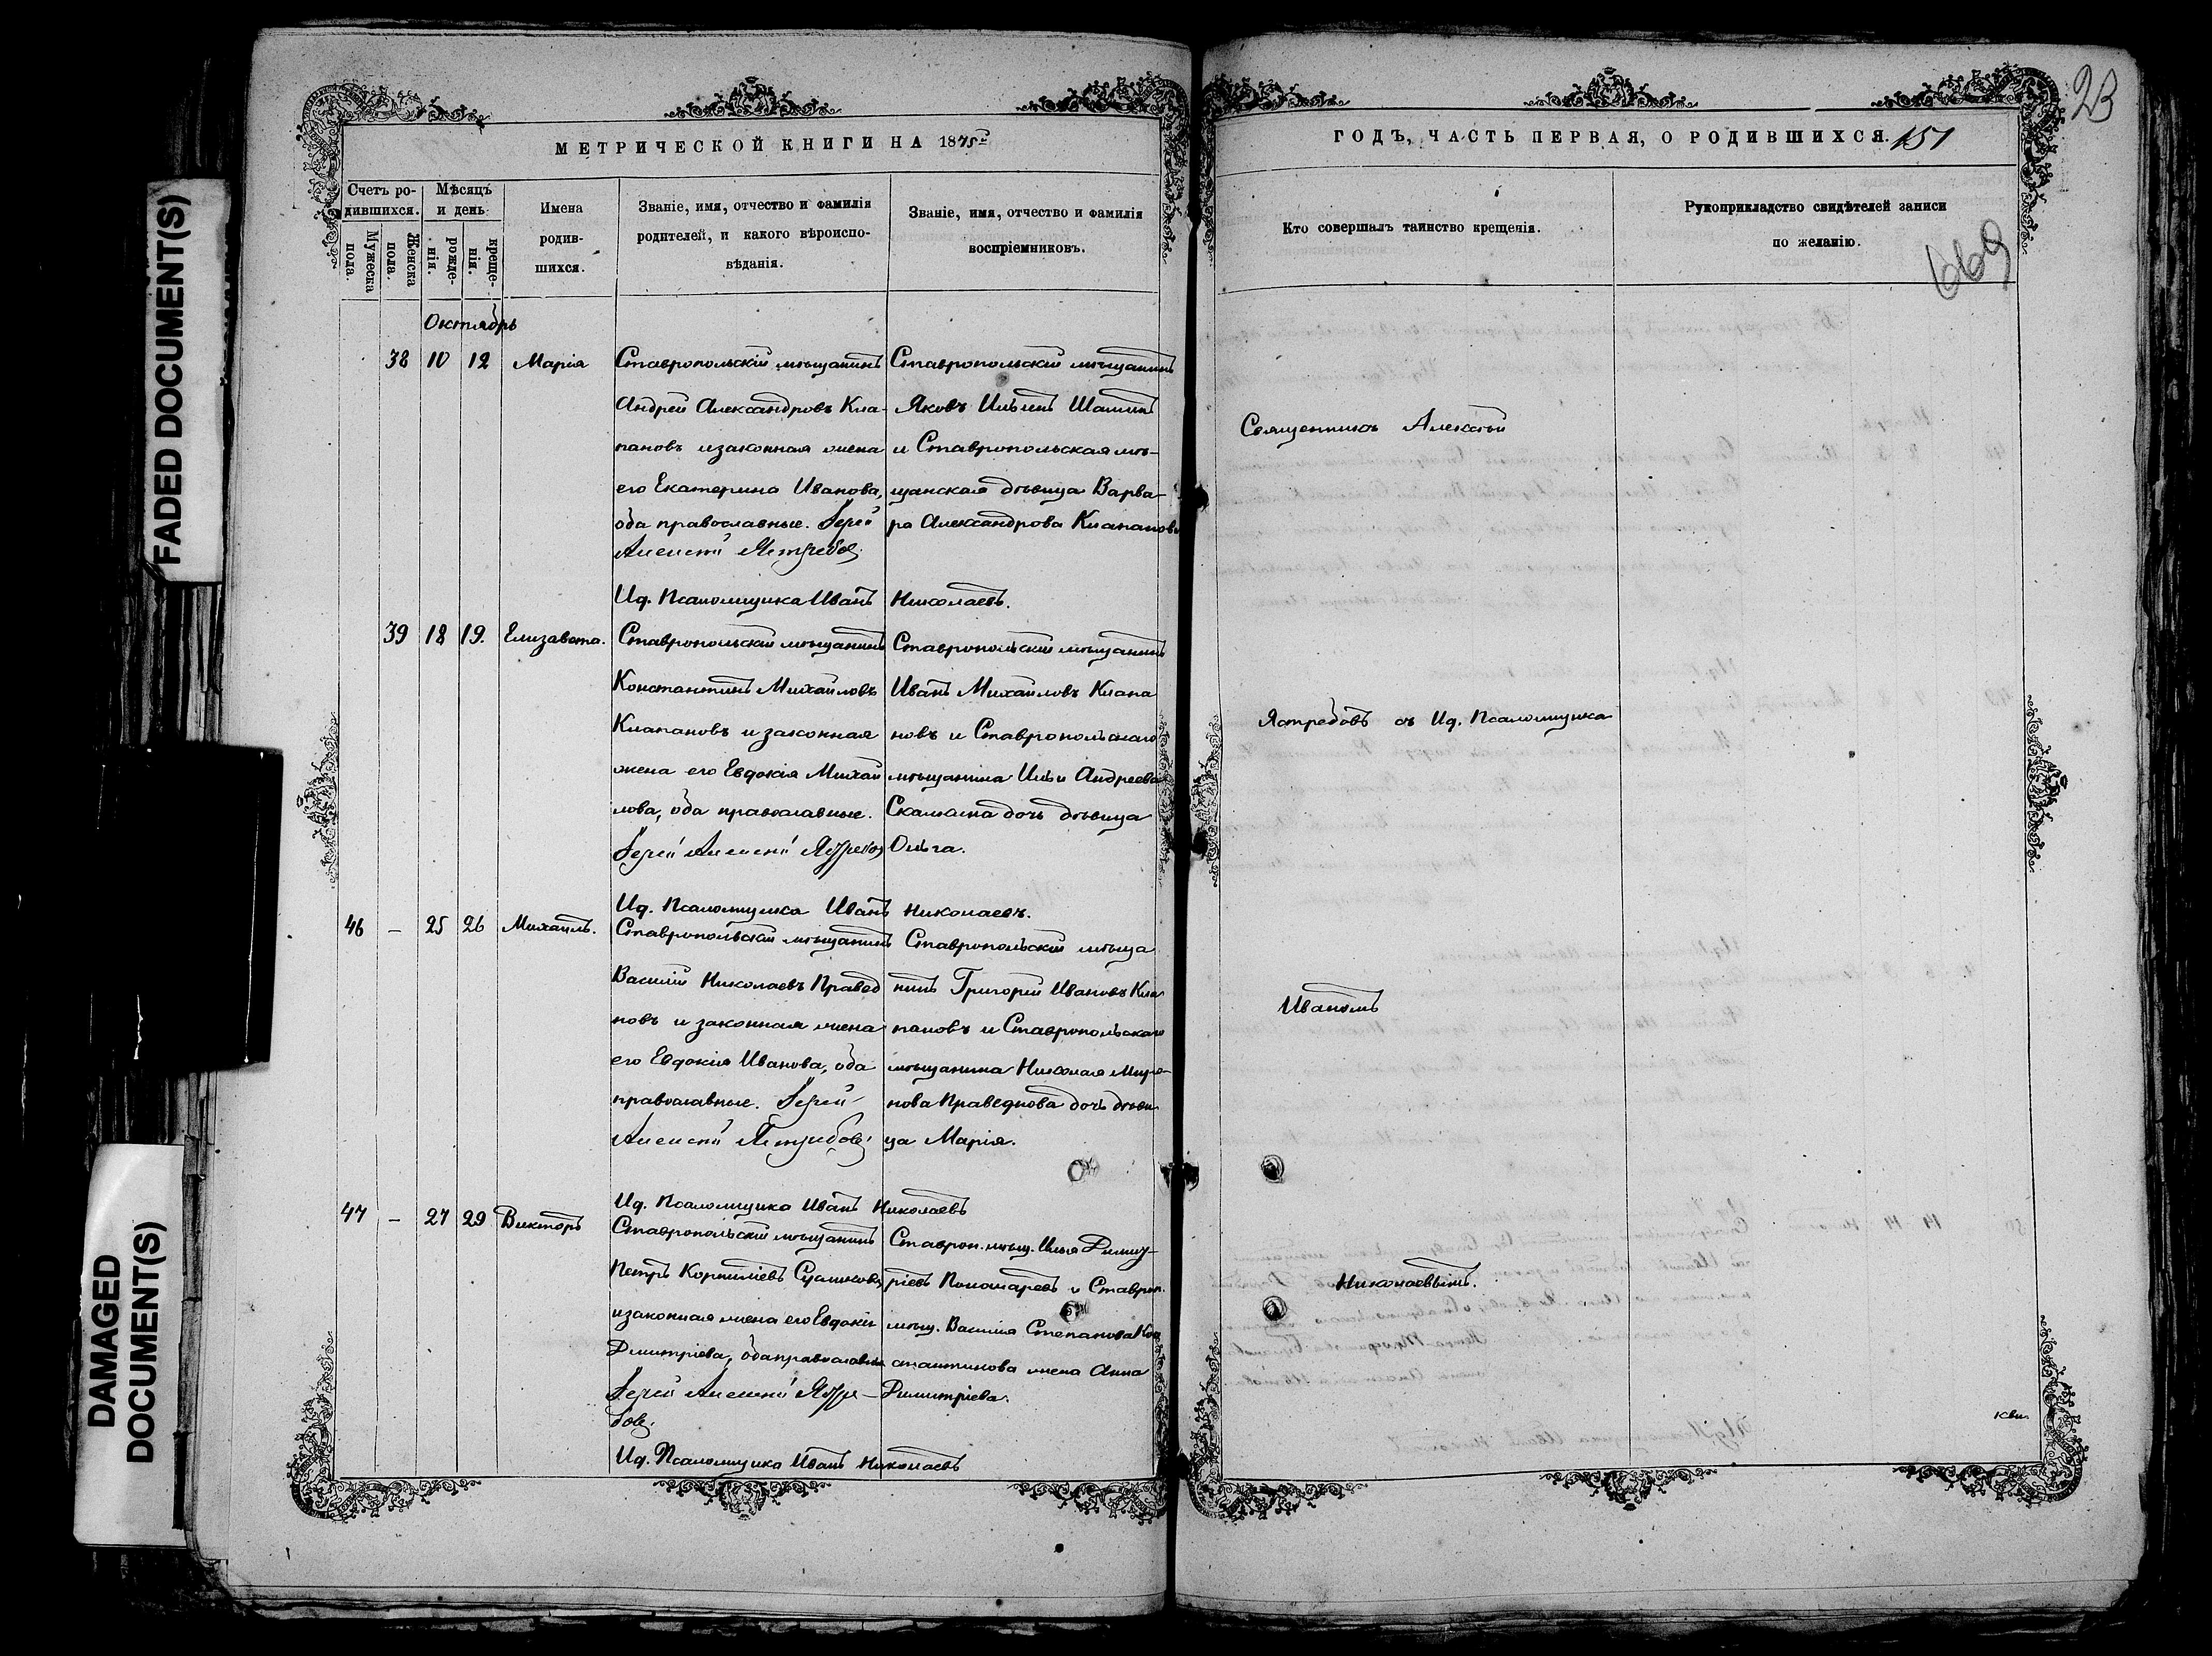 FADED DOCUMENT(S)
DAMAGED
DOCUMENT(S)
МЕТРИЧЕСКОЙ КНИГИ НА 1875
ГОДЪ, ЧАСТЬ ПЕРВАЯ, О РОДИВШИХСЯ. 151
23
669
Счетъ ро-
дившихся.
Мужеска
пола.
Женска
пола.
Мѣсяцъ
и день
рожде-
нія.
креще-
нія.
Имена
родив-
шихся.
Званіе, имя, отчество и фамилія
родителей, и какого вѣроиспо-
вѣданія.
Званіе, имя, отчество и фамилія
воспріемниковъ.
Кто совершалъ таинство крещенія.
Рукоприкладство свидѣтелей записи
по желанію.
Октябрь
38 10 12 Марія
Ставропольскій мѣщанинъ
Андрей Александровъ Кла-
пановъ и законная жена
его Екатерина Иванова,
оба православные. Іерей
Алексій Ястребов
Ставропольскій мѣщанинъ
Яковъ Ильинъ
и Ставропольская мѣ-
щанская дѣвица Варва-
ра Александрова Клапанова
Ид. Псаломщика Иванъ Николаевъ.
39 18 19. Елизавета.
Ставропольскій мѣщанинъ
Константинъ Михайловъ
Клапановъ и законная
жена его Евдокія Михай
лова, оба православные.
Іерей Алексій Ястребов
Ставропольскій мѣщанинъ
Иванъ Михайловъ Клапа
новъ и Ставропольскаго
мѣщанина Ильи Андреева
дочь дѣвица
Ольга.
Ид. Псаломщика Иванъ Николаевъ.
46 – 25 26 Михаилъ.
Ставропольскій мѣщанинъ
Василій Николаевъ Правед
новъ и законная жена
его Евдокія Иванова, оба
православные. Іерей
Алексій Ястребов
Ставропольскій мѣща
нинъ Григорій Ивановъ Кла
пановъ и Ставропольскаго
мѣщанина Николая Миро-
нова Праведнова дочь дѣви
ца Марія.
Ид. Псаломщика Иванъ Николаевъ
47 – 27 29 Викторъ
Ставропольскій мѣщанинъ
Петръ Корниліевъ Сусликовъ
и законная жена его Евдокія
Димитріева, оба православные
Іерей Алексій Ястре-
бов
Ставроп. мѣщ. Илья Димит-
ріевъ Пономаревъ и Ставроп.
мѣщ. Василія Степанова Кон
стантинова жена Анна
Димитріева.
Ид. Псаломщика Иванъ Николаевъ
Священникъ Алексѣй
Ястребовъ съ Ид. Псаломщика
Иваномъ
Николаевымъ.